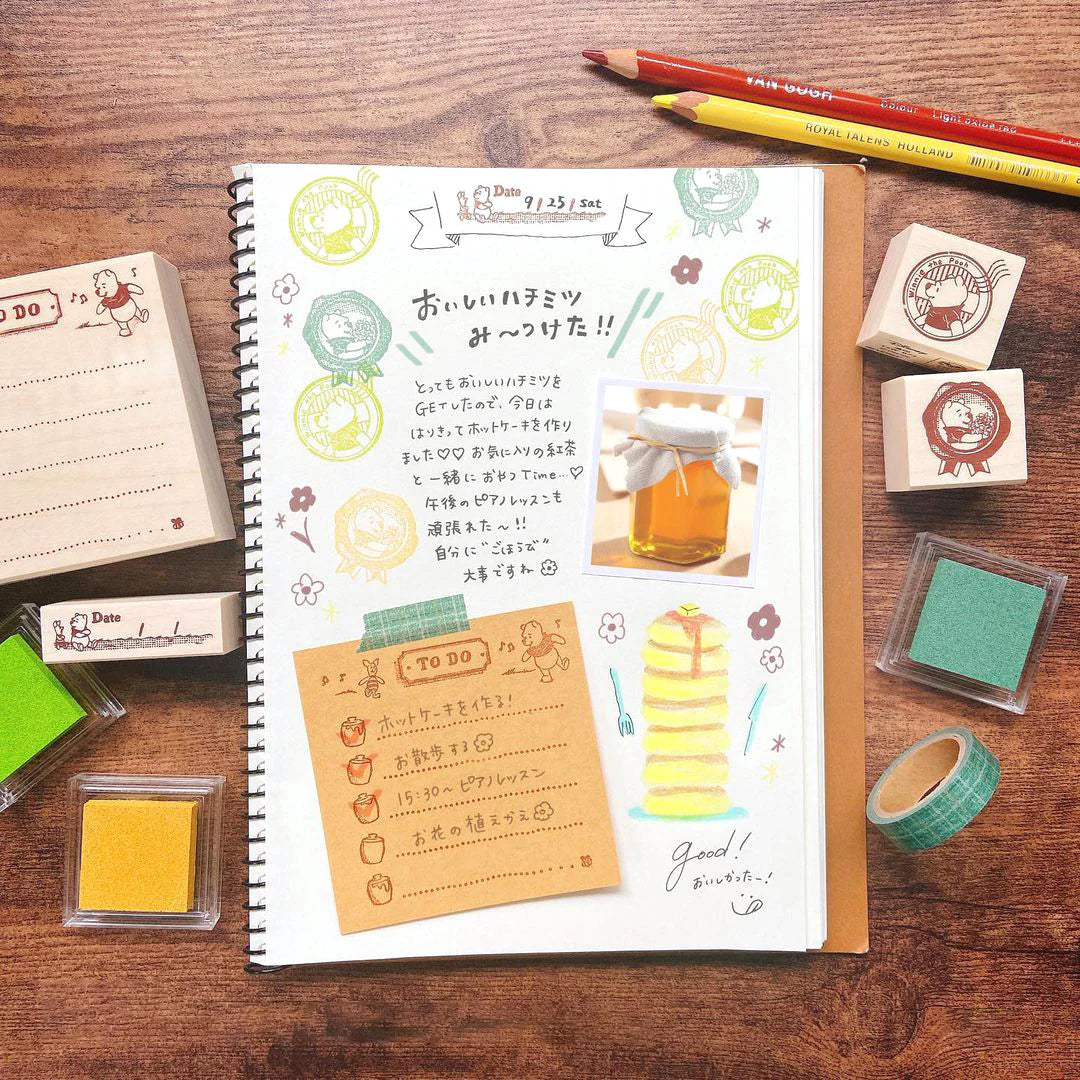 VAN GOGH Colour Light oxide red
ROYAL TALENS HOLLAND
Date
9/25/sat
Winnie the Pooh
Winnie the Pooh
Winnie the Pooh
Winnie the Pooh
おいしいハチミツ
み〜つけた!!
とってもおいしいハチミツを
GETしたので、今日は
はりきってホットケーキを作り
ました♡♡ お気に入りの紅茶
と一緒におやつTime…♡
午後のピアノレッスンも
頑張れた〜!!
自分に"ごほうび"
大事ですね
TO DO
ホットケーキを作る!
お散歩する
15:30〜ピアノレッスン
お花の植えかえ
good!
おいしかったー!
TO DO
Date
Winnie the Pooh